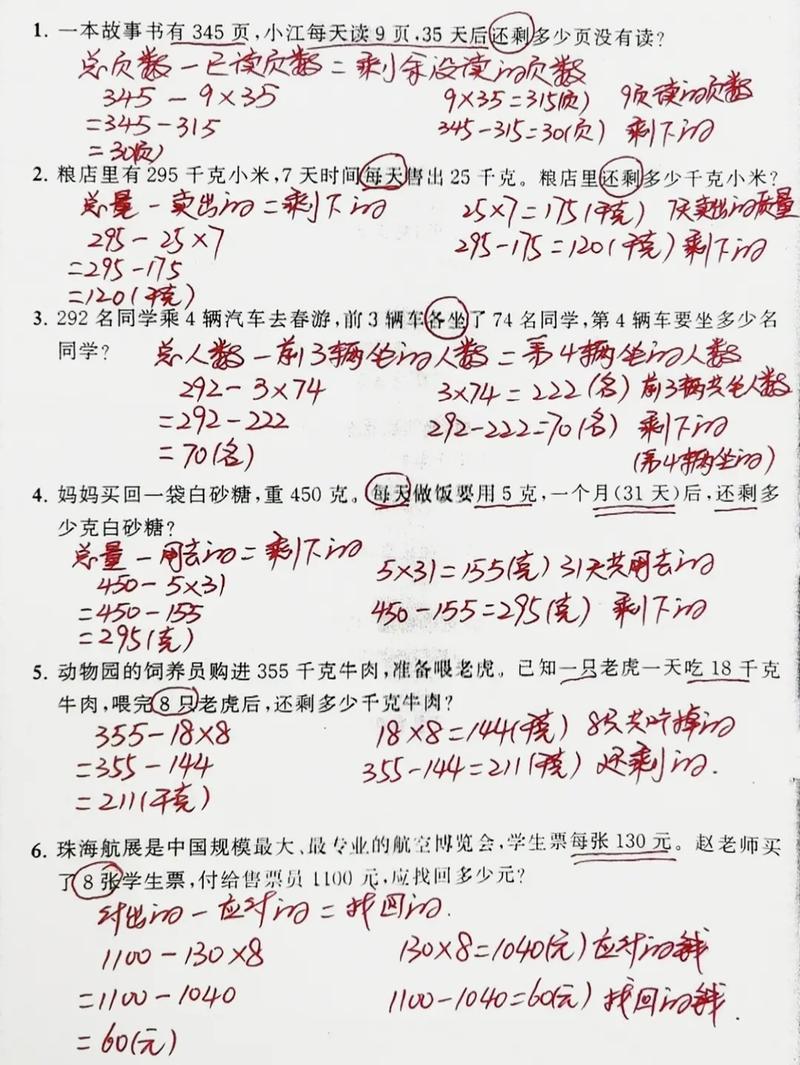 1. 一本故事书有 345 页,小江每天读 9 页,35 天后还剩多少页没有读?
总页数－已读页数＝剩余没读的页数
345－9×35 9×35＝315(页) 9页读的页数
＝345－315 345－315＝30(页) 剩下的
＝30(页)
2. 粮店里有 295 千克小米,7 天时间每天售出 25 千克。粮店里还剩多少千克小米?
总量－卖出的＝剩下的 25×7＝175(千克) 7天卖出的质量
295－25×7 295－175＝120(千克) 剩下的
＝295－175
＝120(千克)
3. 292 名同学乘 4 辆汽车去春游,前 3 辆车各坐了 74 名同学,第 4 辆车要坐多少名
同学? 总人数－前3辆坐的人数＝第4辆坐的人数
292－3×74 3×74＝222(名) 前3辆共坐人数
＝292－222 292－222＝70(名) 剩下的
＝70(名) (第4辆坐的)
4. 妈妈买回一袋白砂糖,重 450 克。每天做饭要用 5 克,一个月(31 天)后,还剩多
少克白砂糖?
总量－用去的＝剩下的
450－5×31 5×31＝155(克) 31天共用去的
＝450－155 450－155＝295(克) 剩下的
＝295(克)
5. 动物园的饲养员购进 355 千克牛肉,准备喂老虎。已知一只老虎一天吃 18 千克
牛肉,喂完 8 只老虎后,还剩多少千克牛肉?
355－18×8 18×8＝144(千克) 8只共吃掉的
＝355－144 355－144＝211(千克) 还剩的.
＝211(千克)
6. 珠海航展是中国规模最大、最专业的航空博览会,学生票每张 130 元。赵老师买
了 8 张学生票,付给售票员 1100 元,应找回多少元?
付出的－应付的＝找回的.
1100－130×8 130×8＝1040(元) 应付的钱
＝1100－1040 1100－1040＝60(元) 找回的钱.
＝60(元)